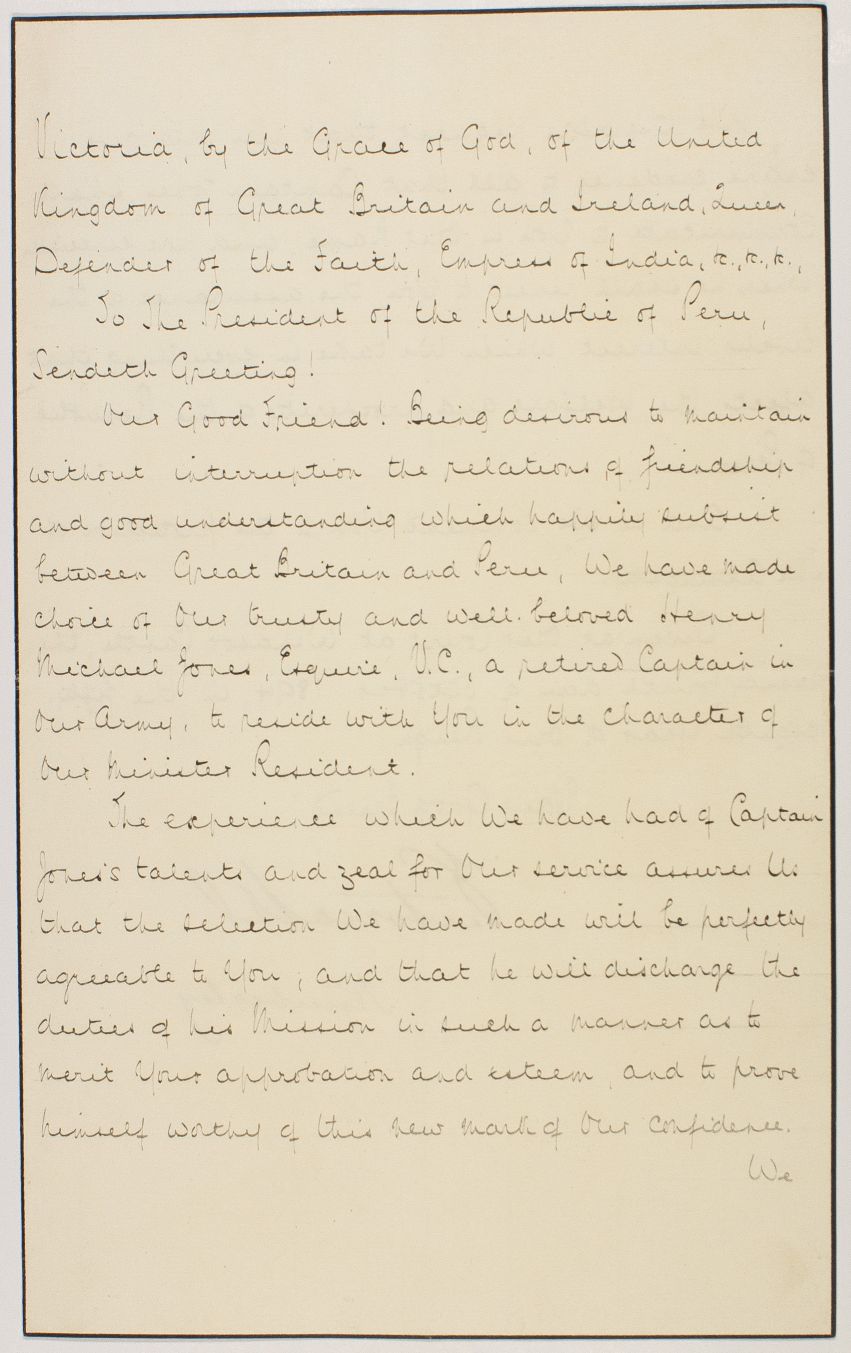 Victoria, by the Grace of God, of the United
Kingdom of Great Britain and Ireland, Queen,
Defender of the Faith, Empress of India, &c., &c., &c.,
To The President of the Republic of Peru,
Sendeth Greeting!
Our Good Friend! Being desirous to maintain
without interruption the relations of friendship
and good understanding which happily subsist
between Great Britain and Peru, We have made
choice of Our trusty and well-beloved Henry
Michael Jones, Esquire, V.C., a retired Captain in
Our Army, to reside with You in the character of
Our Minister Resident.
The experience which We have had of Captain
Jones's talents and zeal for Our service assures Us
that the selection We have made will be perfectly
agreeable to You; and that he will discharge the
duties of his Mission in such a manner as to
merit Your approbation and esteem, and to prove
himself worthy of this new mark of Our confidence.
We